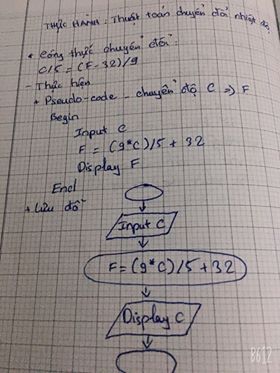 THỰC HÀNH: Thuật toán chuyển đổi nhiệt độ
* Công thức chuyển đổi:
C/5 = (F-32)/9
- Thực hiện
+ Pseudo-code - chuyển độ C => F
Begin
Input C
F = (9*C)/5 + 32
Display F
End
+ Lưu đồ
Input C
F=(9*C)/5+32
Display C
B612